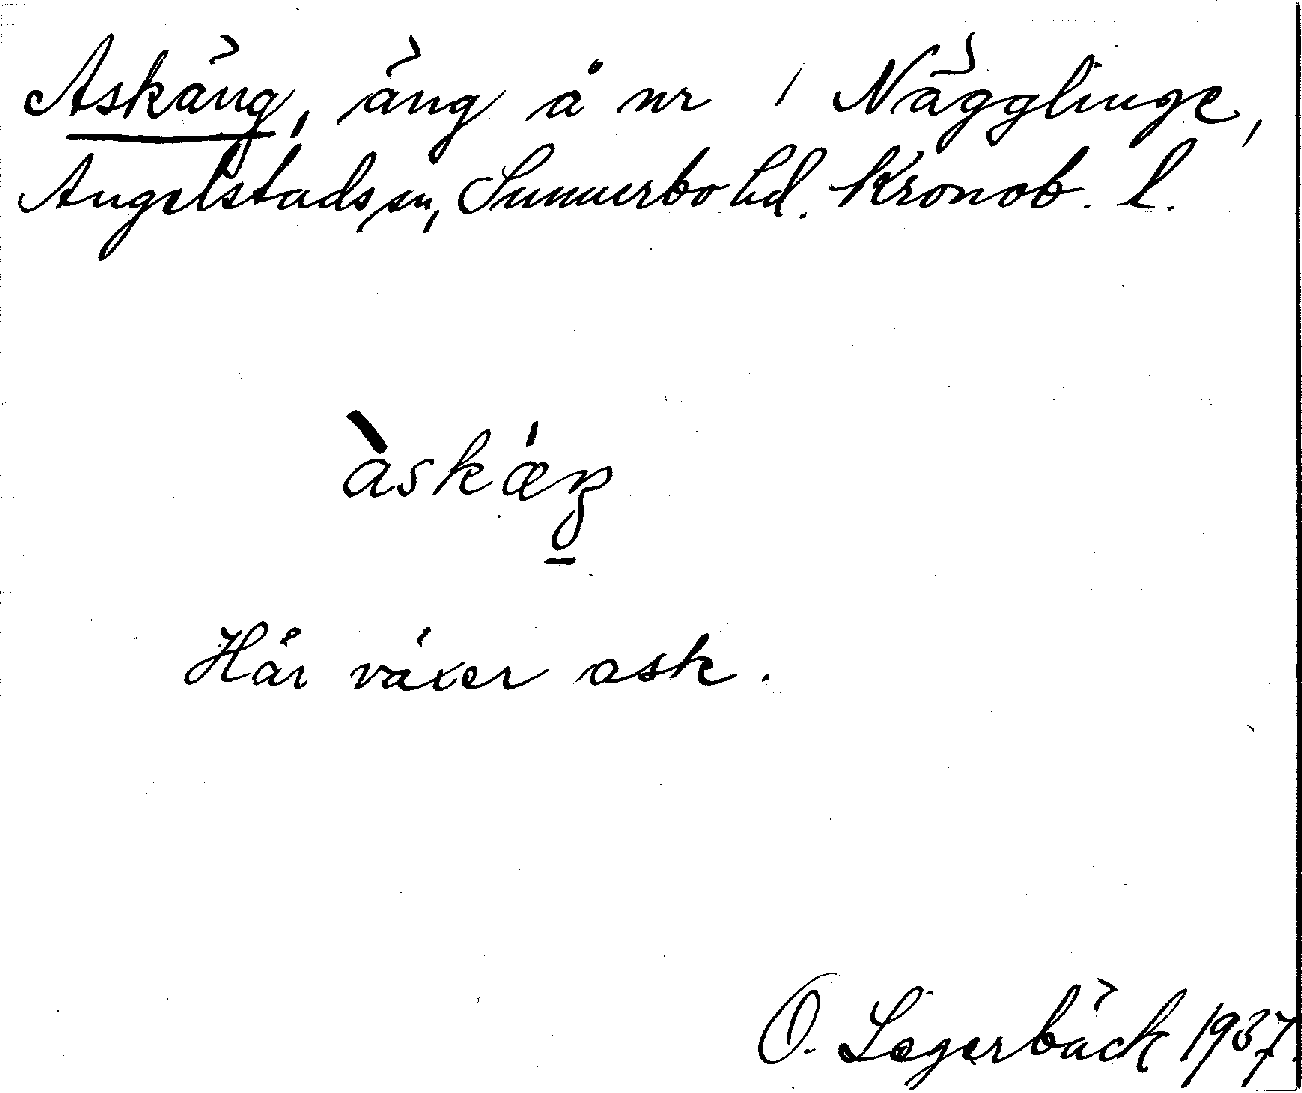 Askäng, äng å nr 1 Nägglinge,
Angelstads sn, Sunnerbo hd. Kronob. l.
àskáŋ
Här växer ask.
O. Lagerbäck 1937.